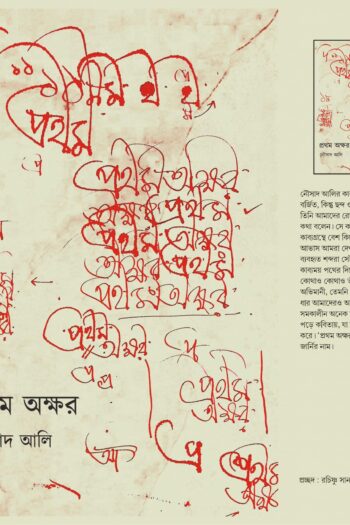 প্রথম
প্র
প্রথম অক্ষর
অক্ষর প্রথম
প্রথম অক্ষর
অক্ষর প্রথম
প্রথম অক্ষর
প্রথম
অক্ষর
প্র
প্রথম
অক্ষর
প্র
প্রথম
অক্ষর
ম অক্ষর
াদ আলি
প্রথম অক্ষর
নৌসাদ আলি
নৌসাদ আলির কা
বর্জিত, কিন্তু ছন্দ ও
তিনি আমাদের রো
কথা বলেন। সে ক
কাব্যগ্রন্থে বেশ কি
আভাস আমরা দে
ব্যবহৃত শব্দরা সৌ
কাব্যময় পথের দি
কোথাও কোথাও ত
অভিমানী, তেমনি
ধার আমাদেরও অ
সমকালীন অনেক
পড়ে কবিতায়, যা
করে। 'প্রথম অক্ষ
জার্নির নাম।
প্রচ্ছদ : রচিষ্ণু সান